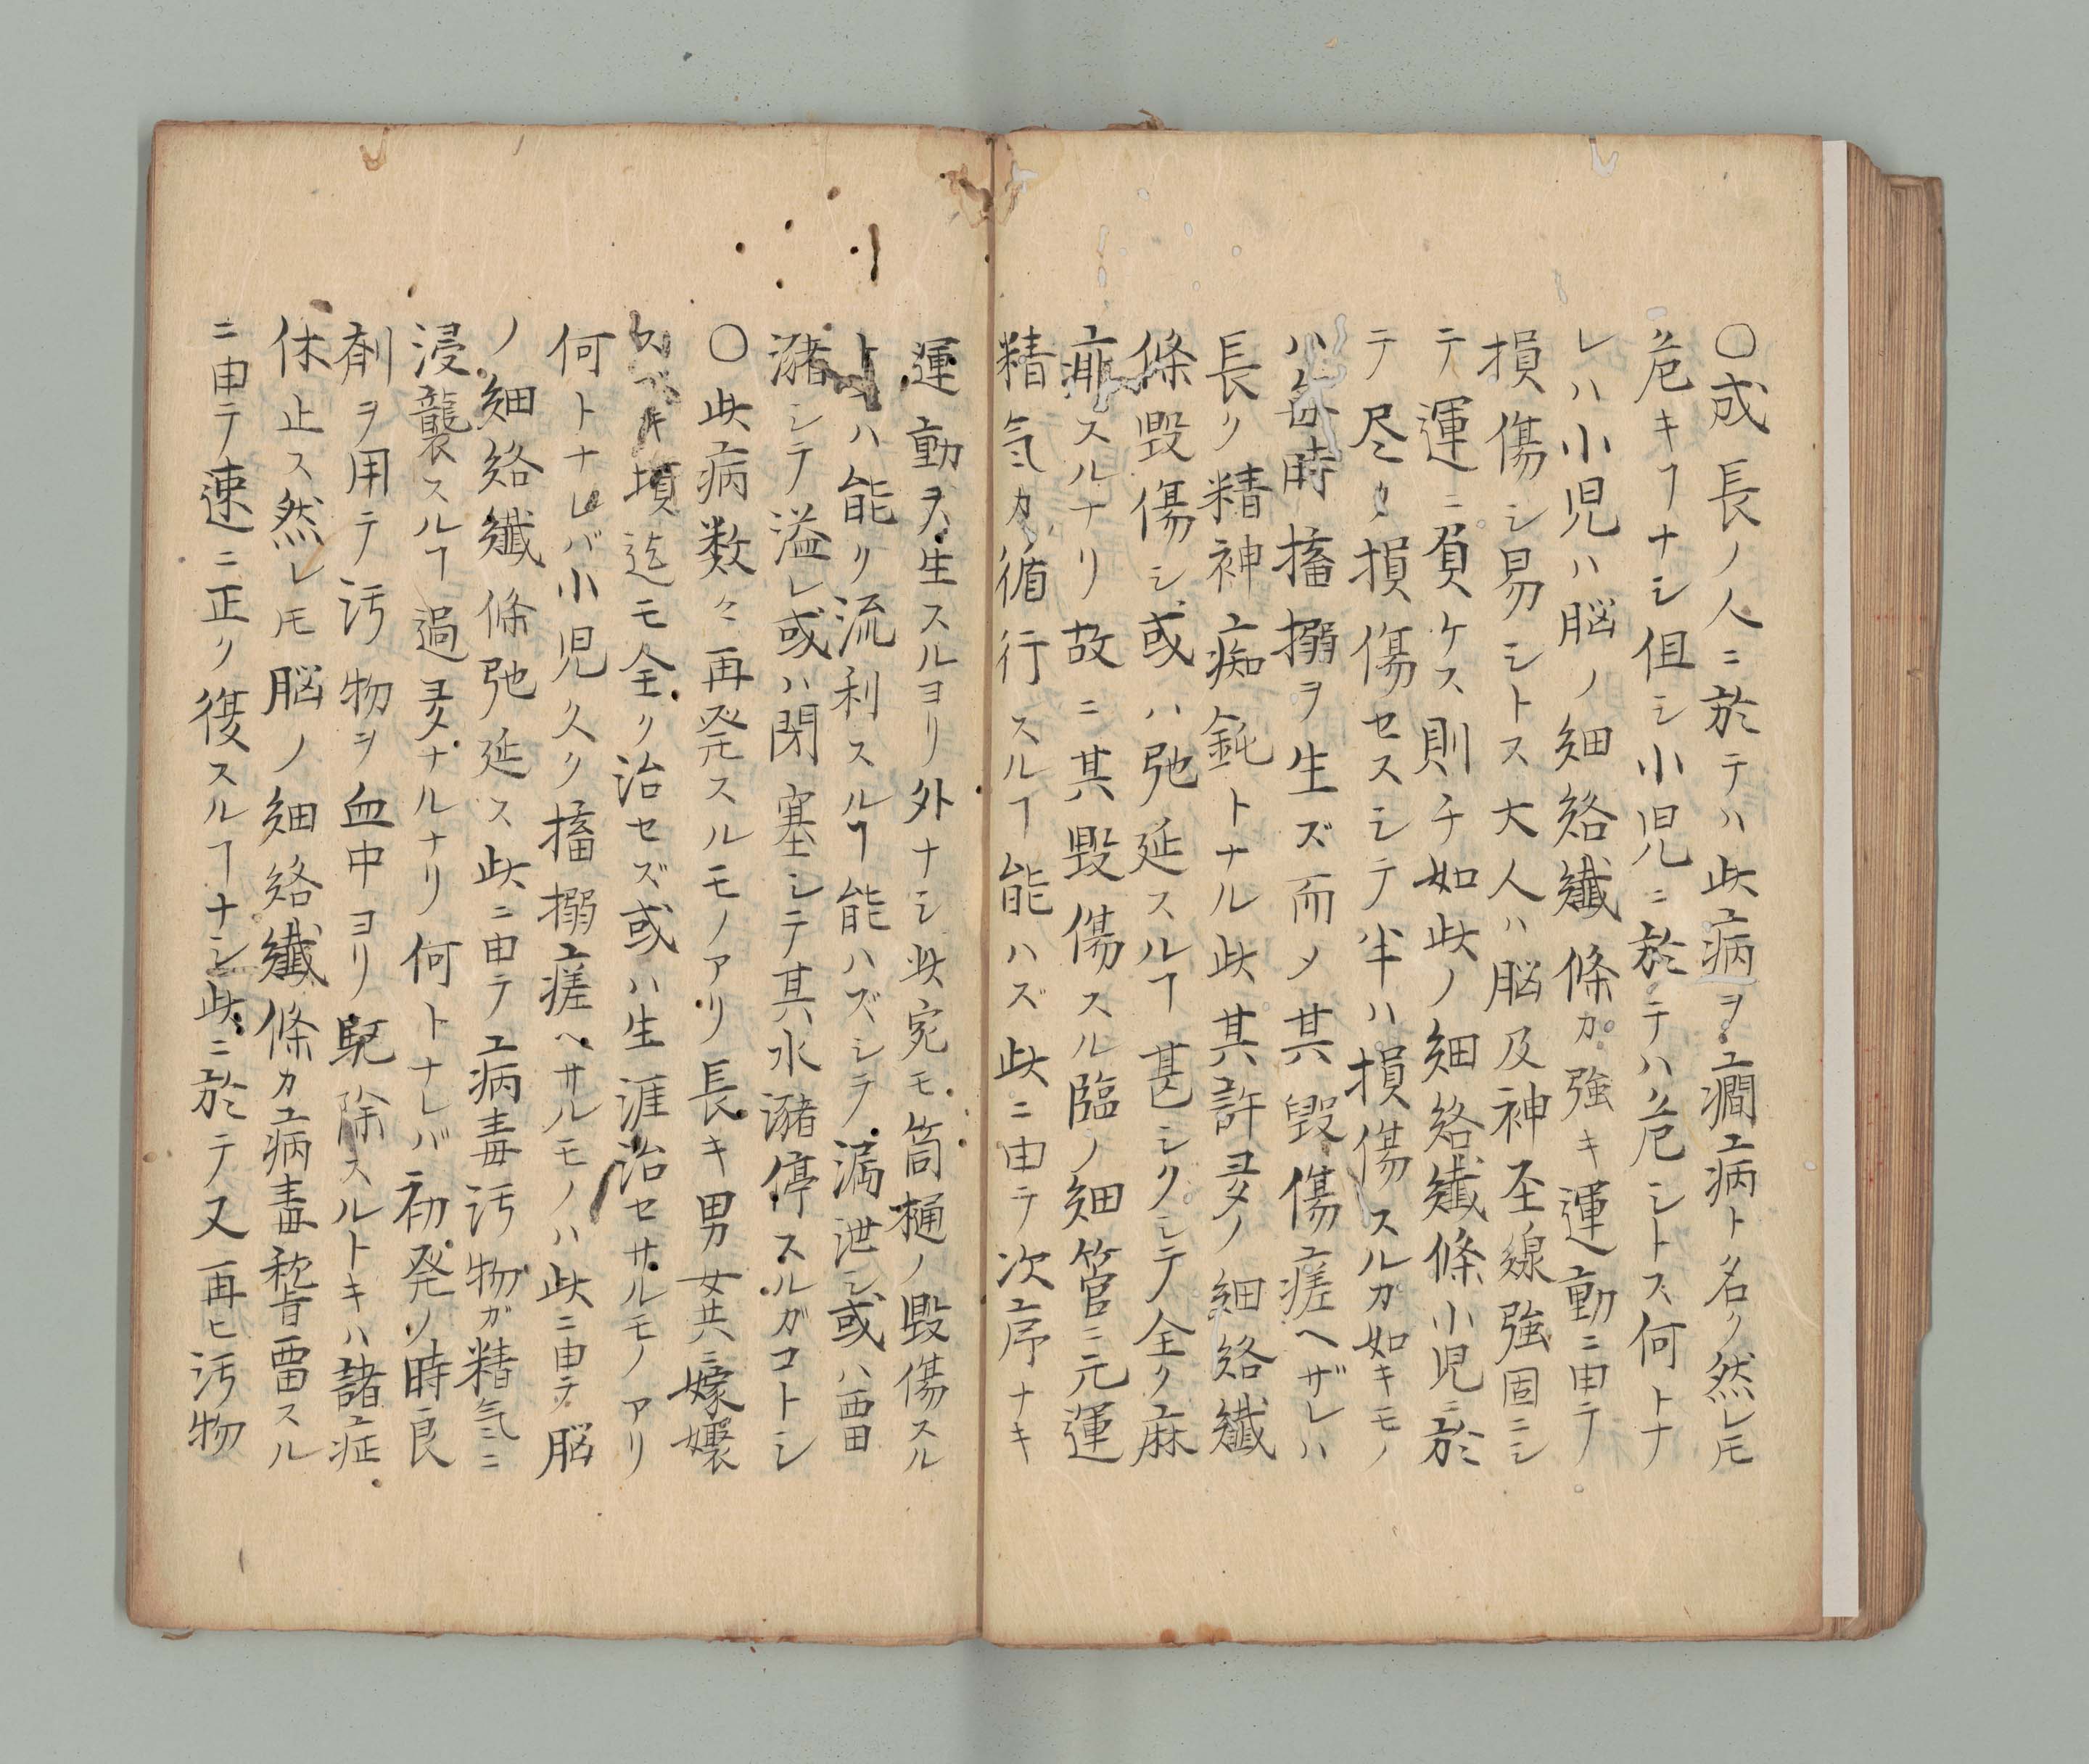 ○成長ノ人ニ於テハ此病ヲ癇病ト名ク然レ𪜈
危キヿナシ但シ小児ニ於テハ危シトス何トナ
レハ小児ハ脳ノ細絡纎條カ強キ運動ニ由テ
損傷シ易シトス大人ハ脳及神圣線強固ニシ
テ運ニ負ケス則チ如此ノ細絡纎條小児ニ於
テ尽ク損傷セスシテ半ハ損傷スルカ如キモノ
ハ毎時搐搦ヲ生ズ而メ其毀傷瘥ヘザレハ
長ク精神痴鈍トナル此其許多ノ細絡纎
條毀傷シ或ハ弛延スルヿ甚シクシテ全ク麻
痱スルナリ故ニ其毀傷スル臨ノ細管ニ元運
精気カ循行スルヿ能ハズ此ニ由テ次序ナキ
運動ヲ生スルヨリ外ナシ此宛モ筒樋ノ毀傷スル
トハ能ク流利スルヿ能ハズシテ漏泄シ或ハ畱
瀦シテ溢レ或ハ閉塞シテ其水瀦停スルガコトシ
○此病数々再発スルモノアリ長キ男女共ニ嫁孃
スベキ頃迄モ全ク治セズ或ハ生涯治セサルモノアリ
何トナレバ小児久ク搐搦瘥ヘサルモノハ此ニ由テ脳
ノ細絡纎條弛延ス此ニ由テ病毒汚物ガ精気ニ
浸襲スルヿ過多ナルナリ何トナレバ初発ノ時良
剤ヲ用テ汚物ヲ血中ヨリ駆除スルトキハ諸症
休止ス然レ𪜈脳ノ細絡纎條カ病毒稽畱スル
ニ由テ速ニ正ク復スルヿナシ此ニ於テ又再ヒ汚物